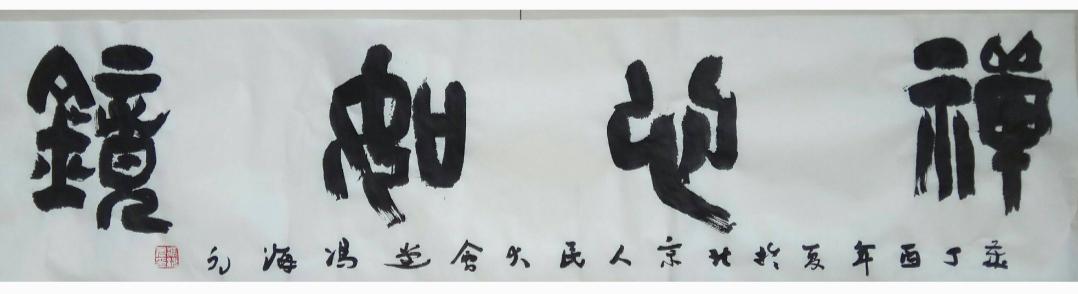 禪心如鏡
丁酉年夏於北京人民大會堂馮海